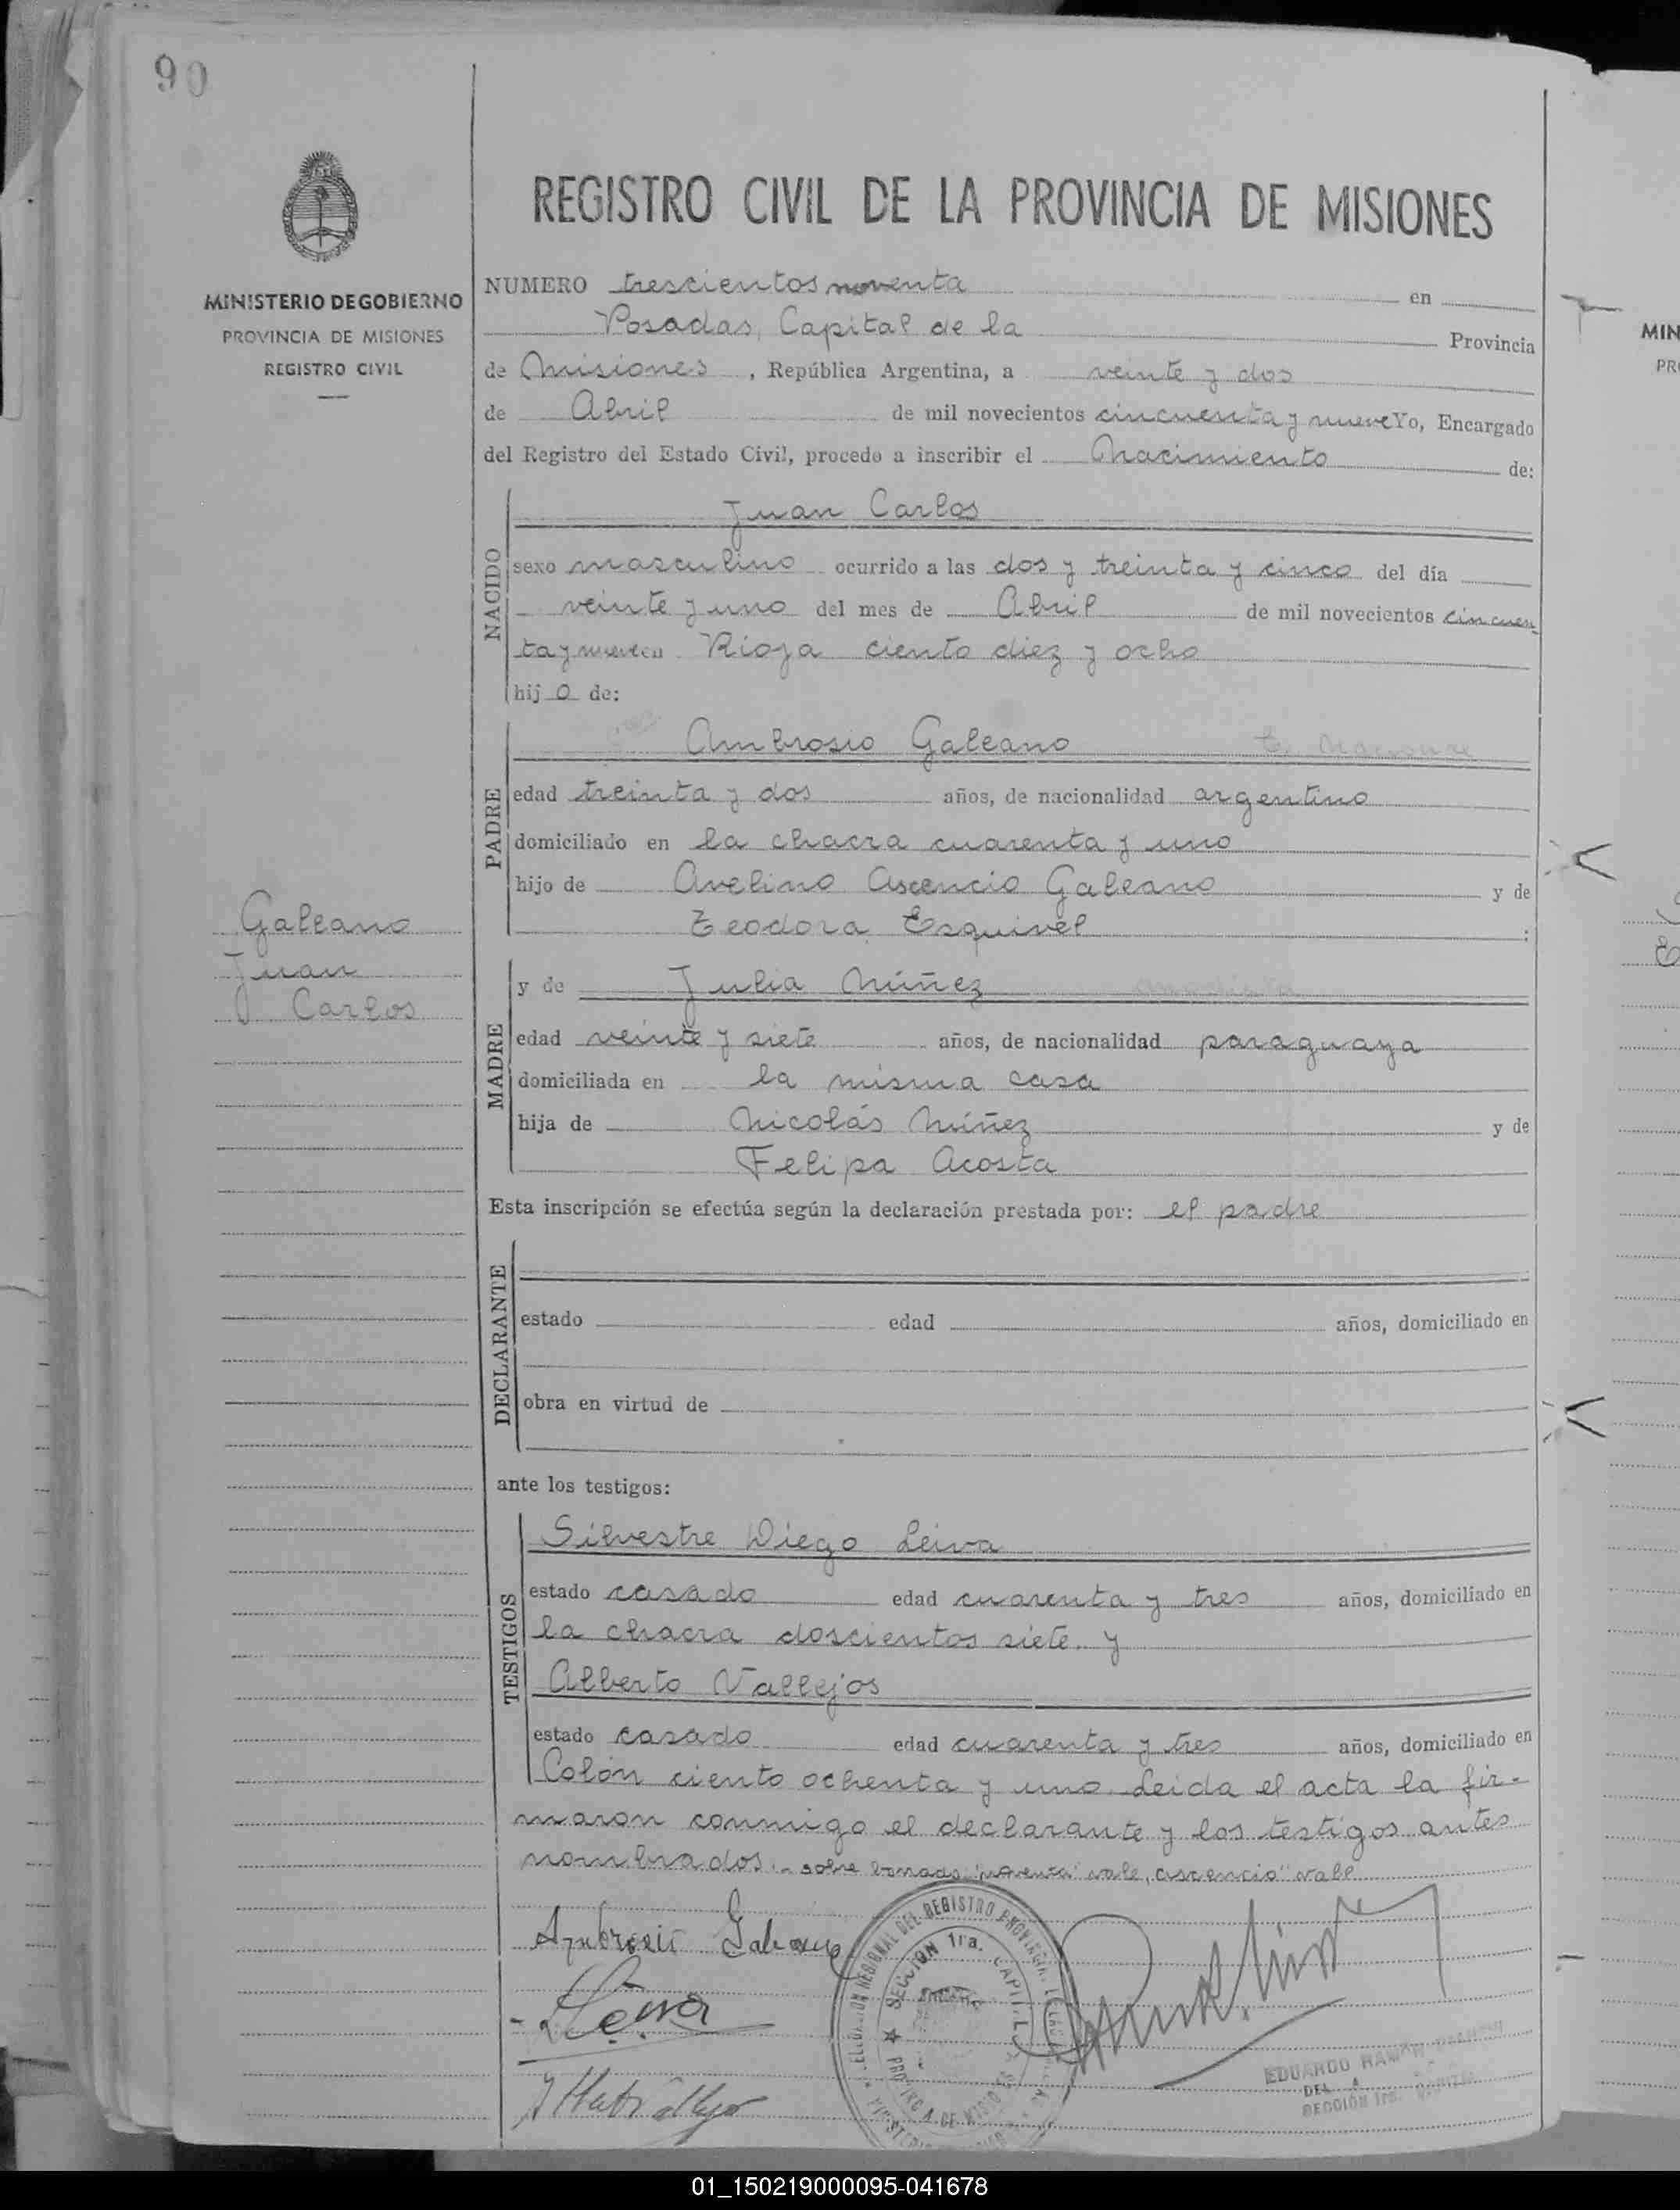 90
MINISTERIO DE GOBIERNO
PROVINCIA DE MISIONES
REGISTRO CIVIL
REGISTRO CIVIL DE LA PROVINCIA DE MISIONES
NUMERO trescientos noventa en
Posadas, Capital de la Provincia
de Misiones, República Argentina, a veinte y dos
de Abril de mil novecientos cincuenta y nueve Yo, Encargado
del Registro del Estado Civil, procedo a inscribir el Nacimiento de:
NACIDO
Juan Carlos
sexo masculino ocurrido a las dos y treinta y cinco del día
veinte y uno del mes de Abril de mil novecientos cincuen
ta y nueve en Rioja ciento diez y ocho
hijo de:
PADRE
Ambrosio Galeano
edad treinta y dos años, de nacionalidad argentino
domiciliado en la chacra cuarenta y uno
hijo de Avelino Ascencio Galeano y de
Teodora Esquivel :
Galeano
Juan
Carlos
MADRE
y de Julia Núñez
edad veinte y siete años, de nacionalidad paraguaya
domiciliada en la misma casa
hija de Nicolás Núñez y de
Felipa Acosta
Esta inscripción se efectúa según la declaración prestada por: el padre
DECLARANTE
estado edad años, domiciliado en
obra en virtud de
ante los testigos:
TESTIGOS
Silvestre Diego Leiva
estado casado edad cuarenta y tres años, domiciliado en
la chacra doscientos siete y
Alberto Vallejos
estado casado edad cuarenta y tres años, domiciliado en
Colón ciento ochenta y uno. Leida el acta la fir-
maron conmigo el declarante y los testigos antes
nombrados.- sobre borrado: "noventa" vale, "ascencio" vale
Ambrosio Galeano
Leiva
SECCION 1ra. CAPITAL
EDUARDO RAMON
SECCIÓN 1ra. CAPITAL
MIN
01_150219000095-041678